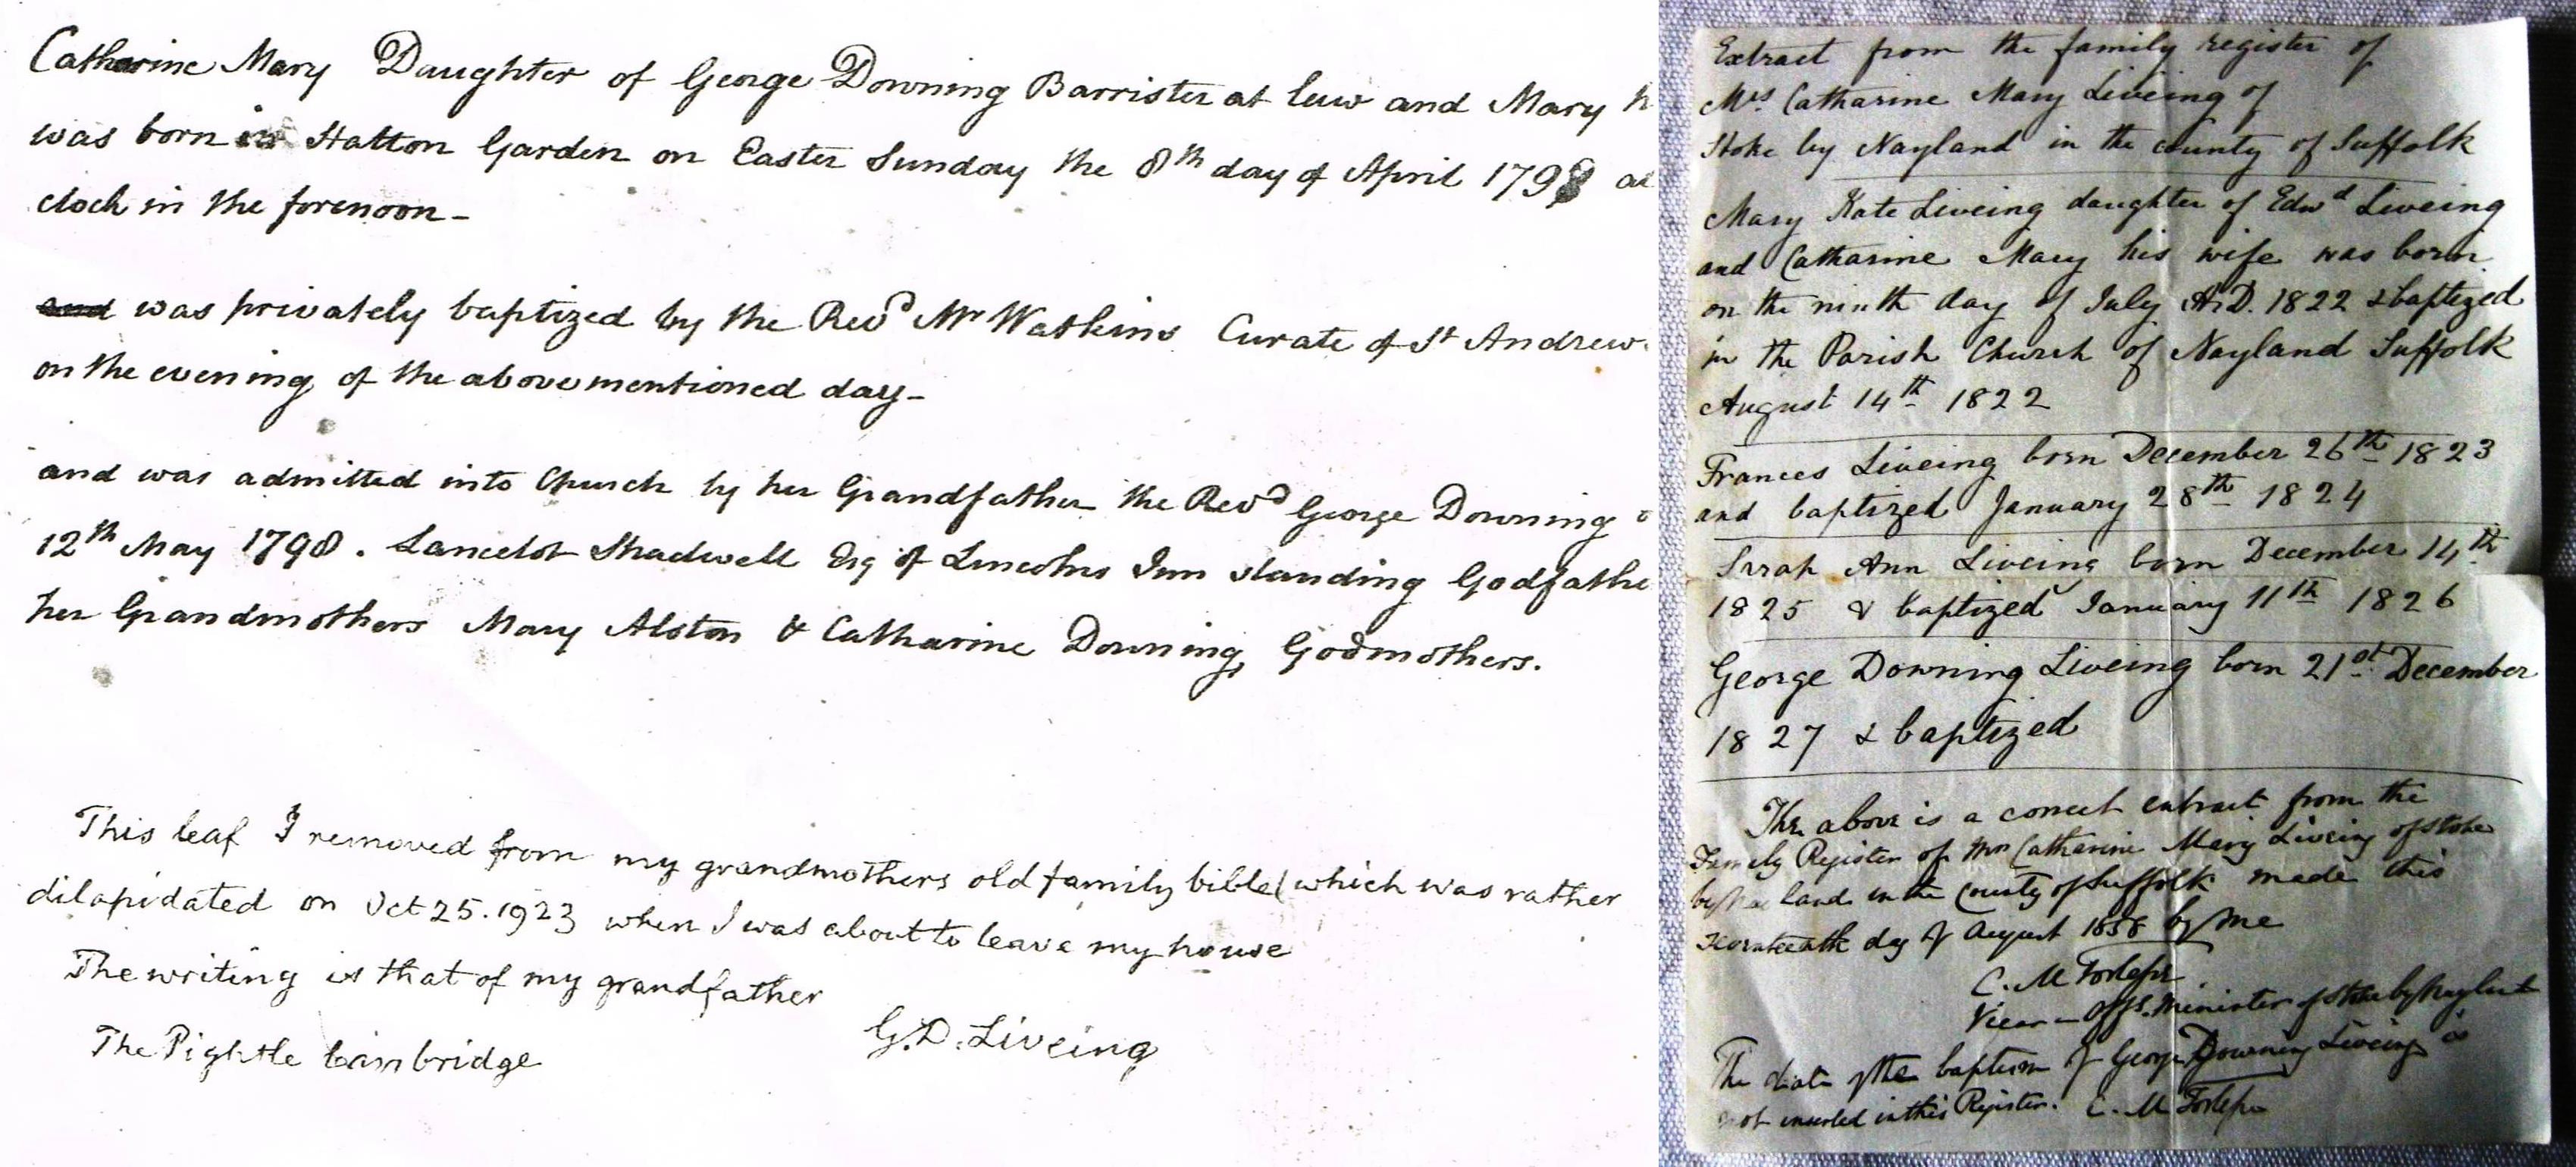 Catharine Mary Daughter of George Downing Barrister at law and Mary h
was born in Hatton Garden on Easter Sunday the 8th day of April 1798 at
clock in the forenoon -
and was privately baptized by the Revd Mr Watkins Curate of St Andrew
on the evening of the abovementioned day -
and was admitted into Church by her Grandfather the Revd George Downing
12th May 1798. Lancelot Shadwell Esq of Lincolns Inn standing Godfathe
her Grandmothers Mary Alston & Catharine Downing, Godmothers.
This leaf I removed from my grandmothers old family bible (which was rather
dilapidated on Oct 25. 1923 when I was about to leave my house
The writing is that of my grandfather
G.D. Liveing
The Pightle Cambridge
Extract from the family register of
Mrs Catharine Mary Liveing of
Stoke by Nayland in the county of Suffolk
Mary Kate Liveing daughter of Edwd Liveing
and Catharine Mary his wife was born
on the ninth day of July A.D. 1822 & baptized
in the Parish Church of Nayland Suffolk
August 14th 1822
Frances Liveing born December 26th 1823
and baptized January 28th 1824
Sarah Ann Liveing born December 14th
1825 & baptized January 11th 1826
George Downing Liveing born 21st December
1827 & baptized
The above is a correct extract from the
Family Register of Mrs Catharine Mary Liveing of Stoke
by Nayland in the County of Suffolk made this
day of August 1858 by me
C. M.
Vicar - Offg. Minister of Stoke by Nayland
The date of the baptism of George Downing Liveing is
not inserted in this Register. C. M.